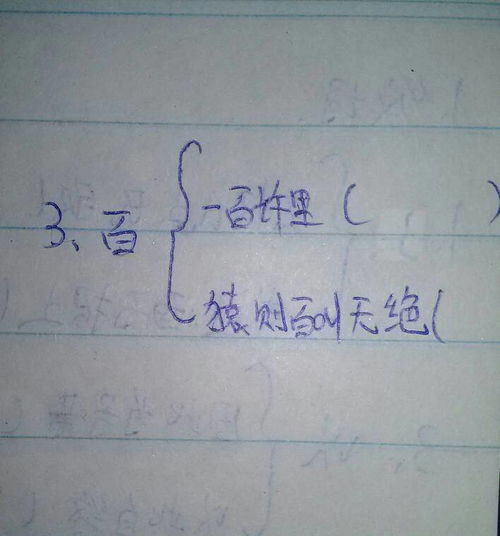 3、百
一百许里( )
猿则百叫无绝(